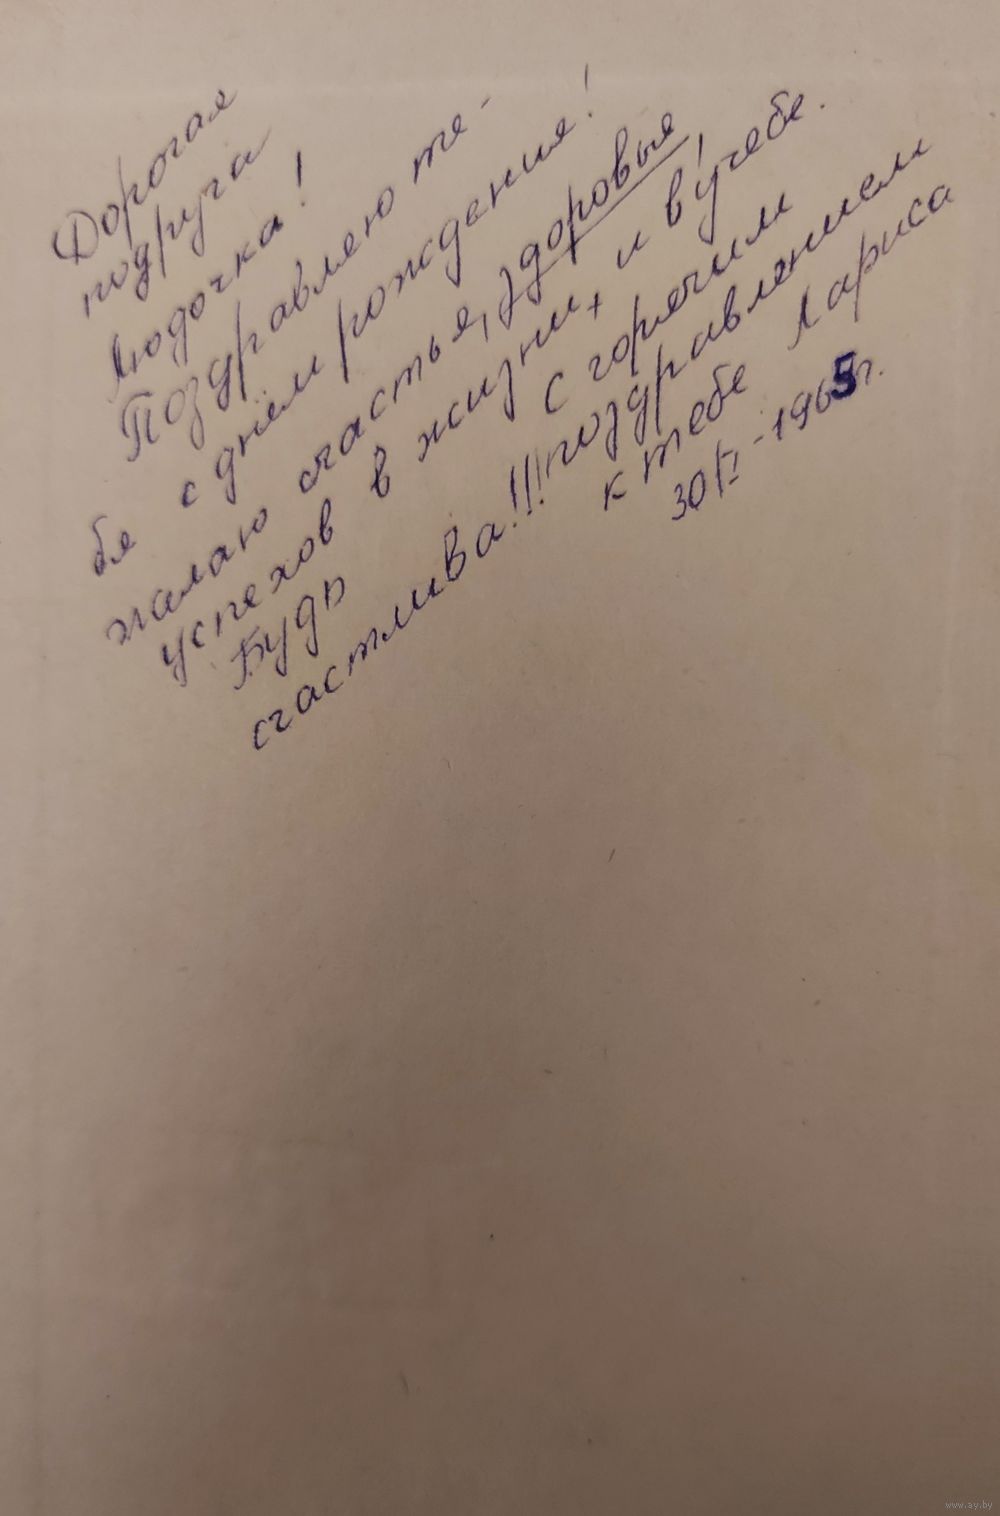 Дорогая
подруга
Людочка!
Поздравляю те-
бя с днём рождения!
желаю счастья, здоровья,
успехов в жизни, и в учебе.
Будь
счастлива!!!
С горячим
поздравлением
к тебе Лариса
30/VI-1965г.
www.ay.by